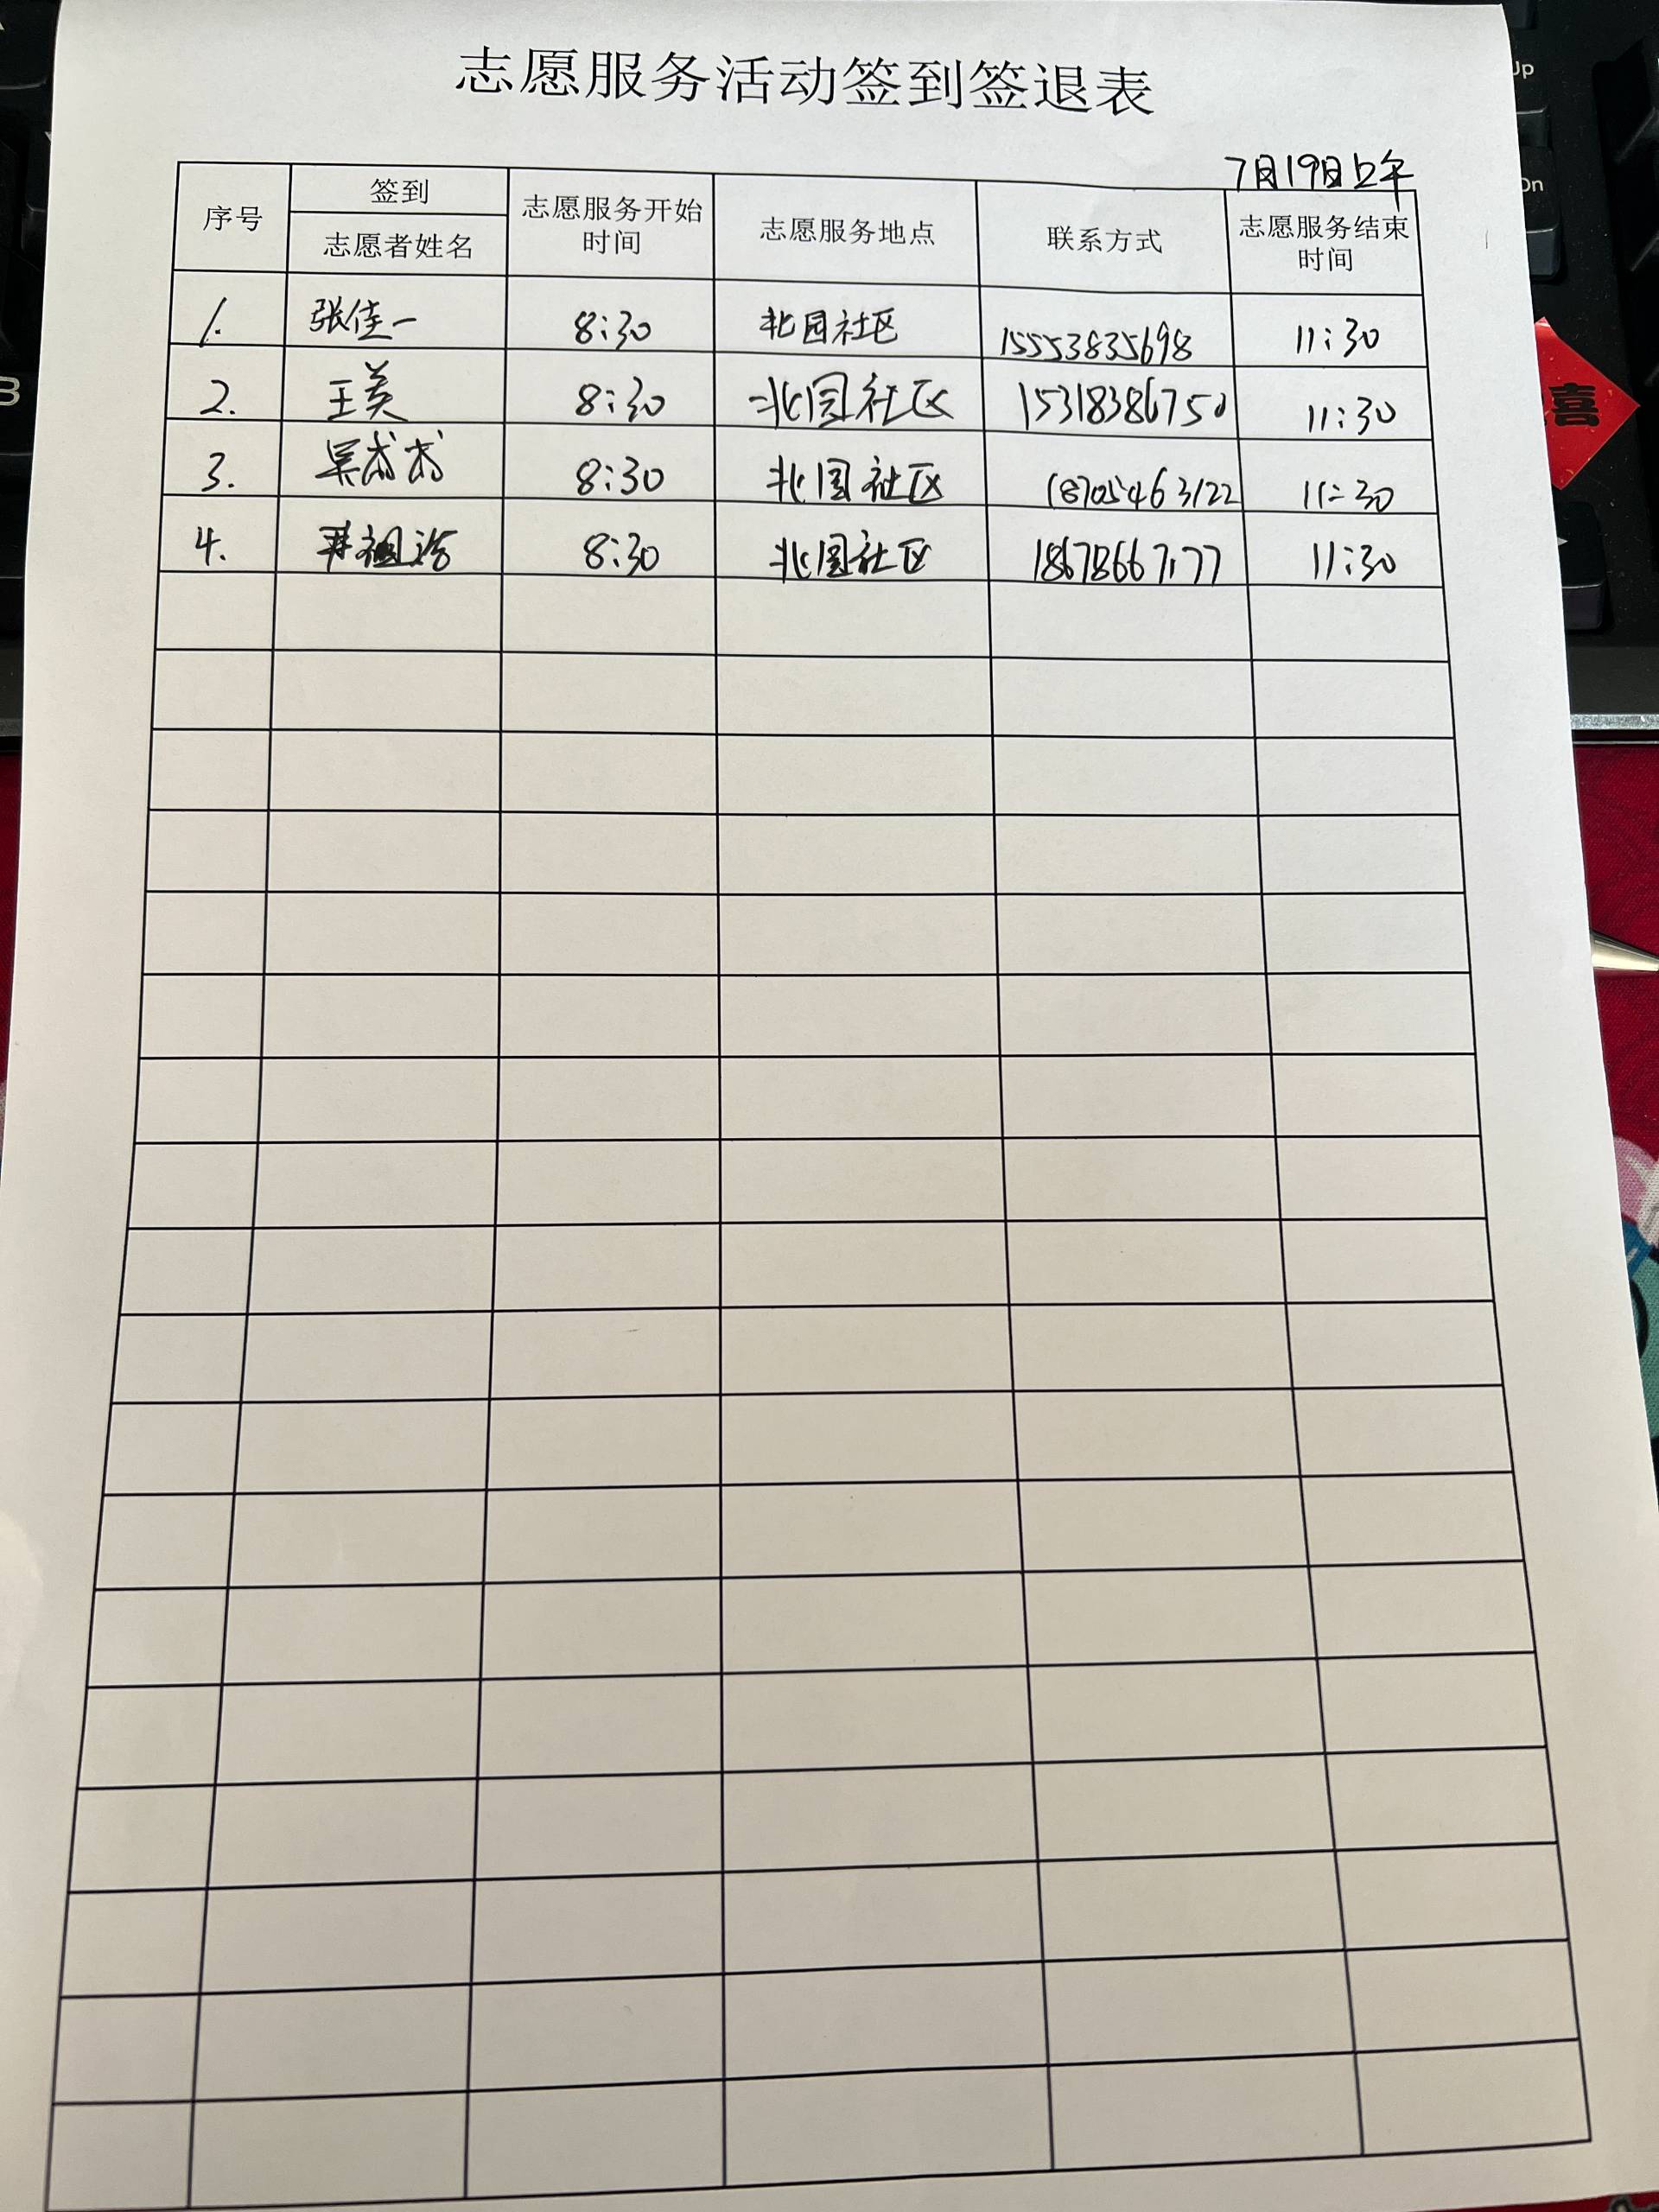 志愿服务活动签到签退表
7月19日上午
序号 签到 志愿者姓名 志愿服务开始时间 志愿服务地点 联系方式 志愿服务结束时间
1. 张佳一 8:30 北园社区 15553835698 11:30
2. 王美 8:30 北园社区 15318386750 11:30
3. 吴 8:30 北园社区 18705463122 11:30
4. 8:30 北园社区 18678667177 11:30
Up
On
B
喜